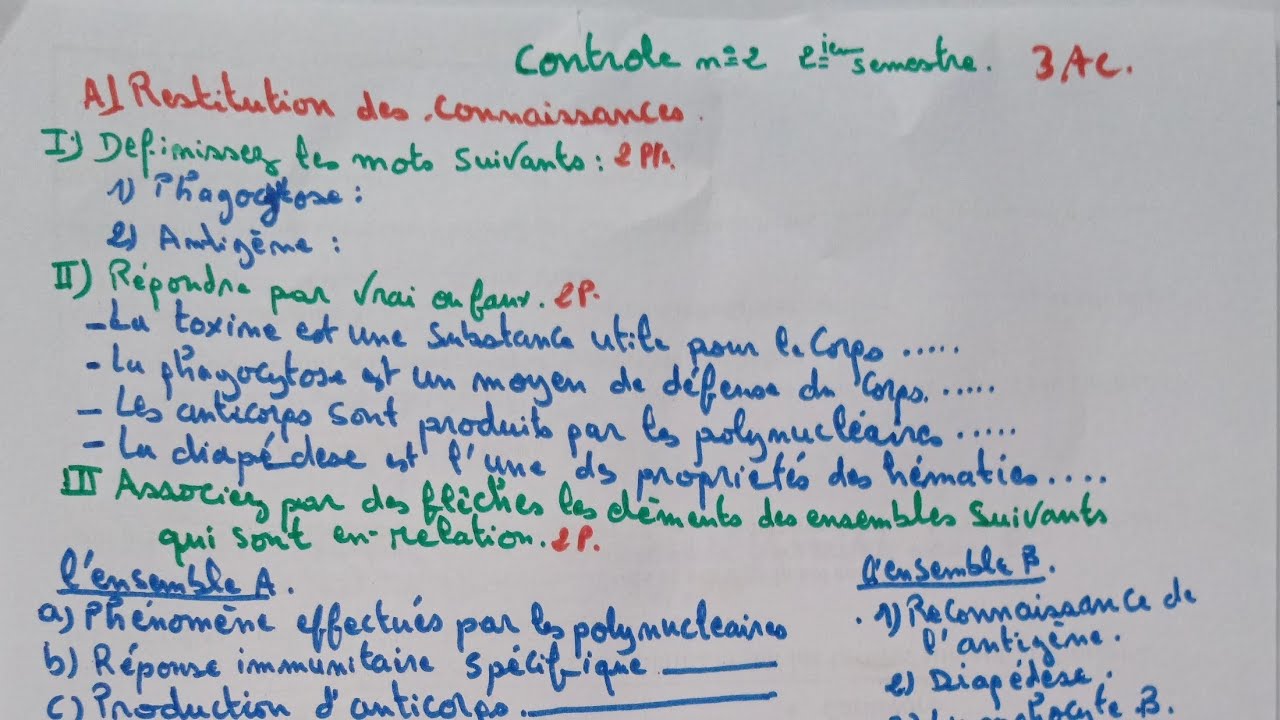 Controle n=2 2ieм semestre. 3AC.
A) Restitution des connaissances.
I) Définissez les mots suivants : 2 Pts.
1) Phagocytose :
2) Antigène :
II) Répondre par vrai ou faux. 2P.
- La toxine est une substance utile pour le corps .....
- La phagocytose est un moyen de défense du corps. .....
- Les anticorps sont produits par les polynucléaires .....
- La diapédèse est l'une des propriétés des hématies ....
III Associez par des flèches les éléments des ensembles suivants
qui sont en-relation. 2P.
l'ensemble A. l'ensemble B.
a) Phénomène effectués par les polynucleaires
b) Réponse immunitaire spécifique
c) Production d'anticorps.
1) Reconnaissance de
l'antigène.
2) Diapédèse.
B.